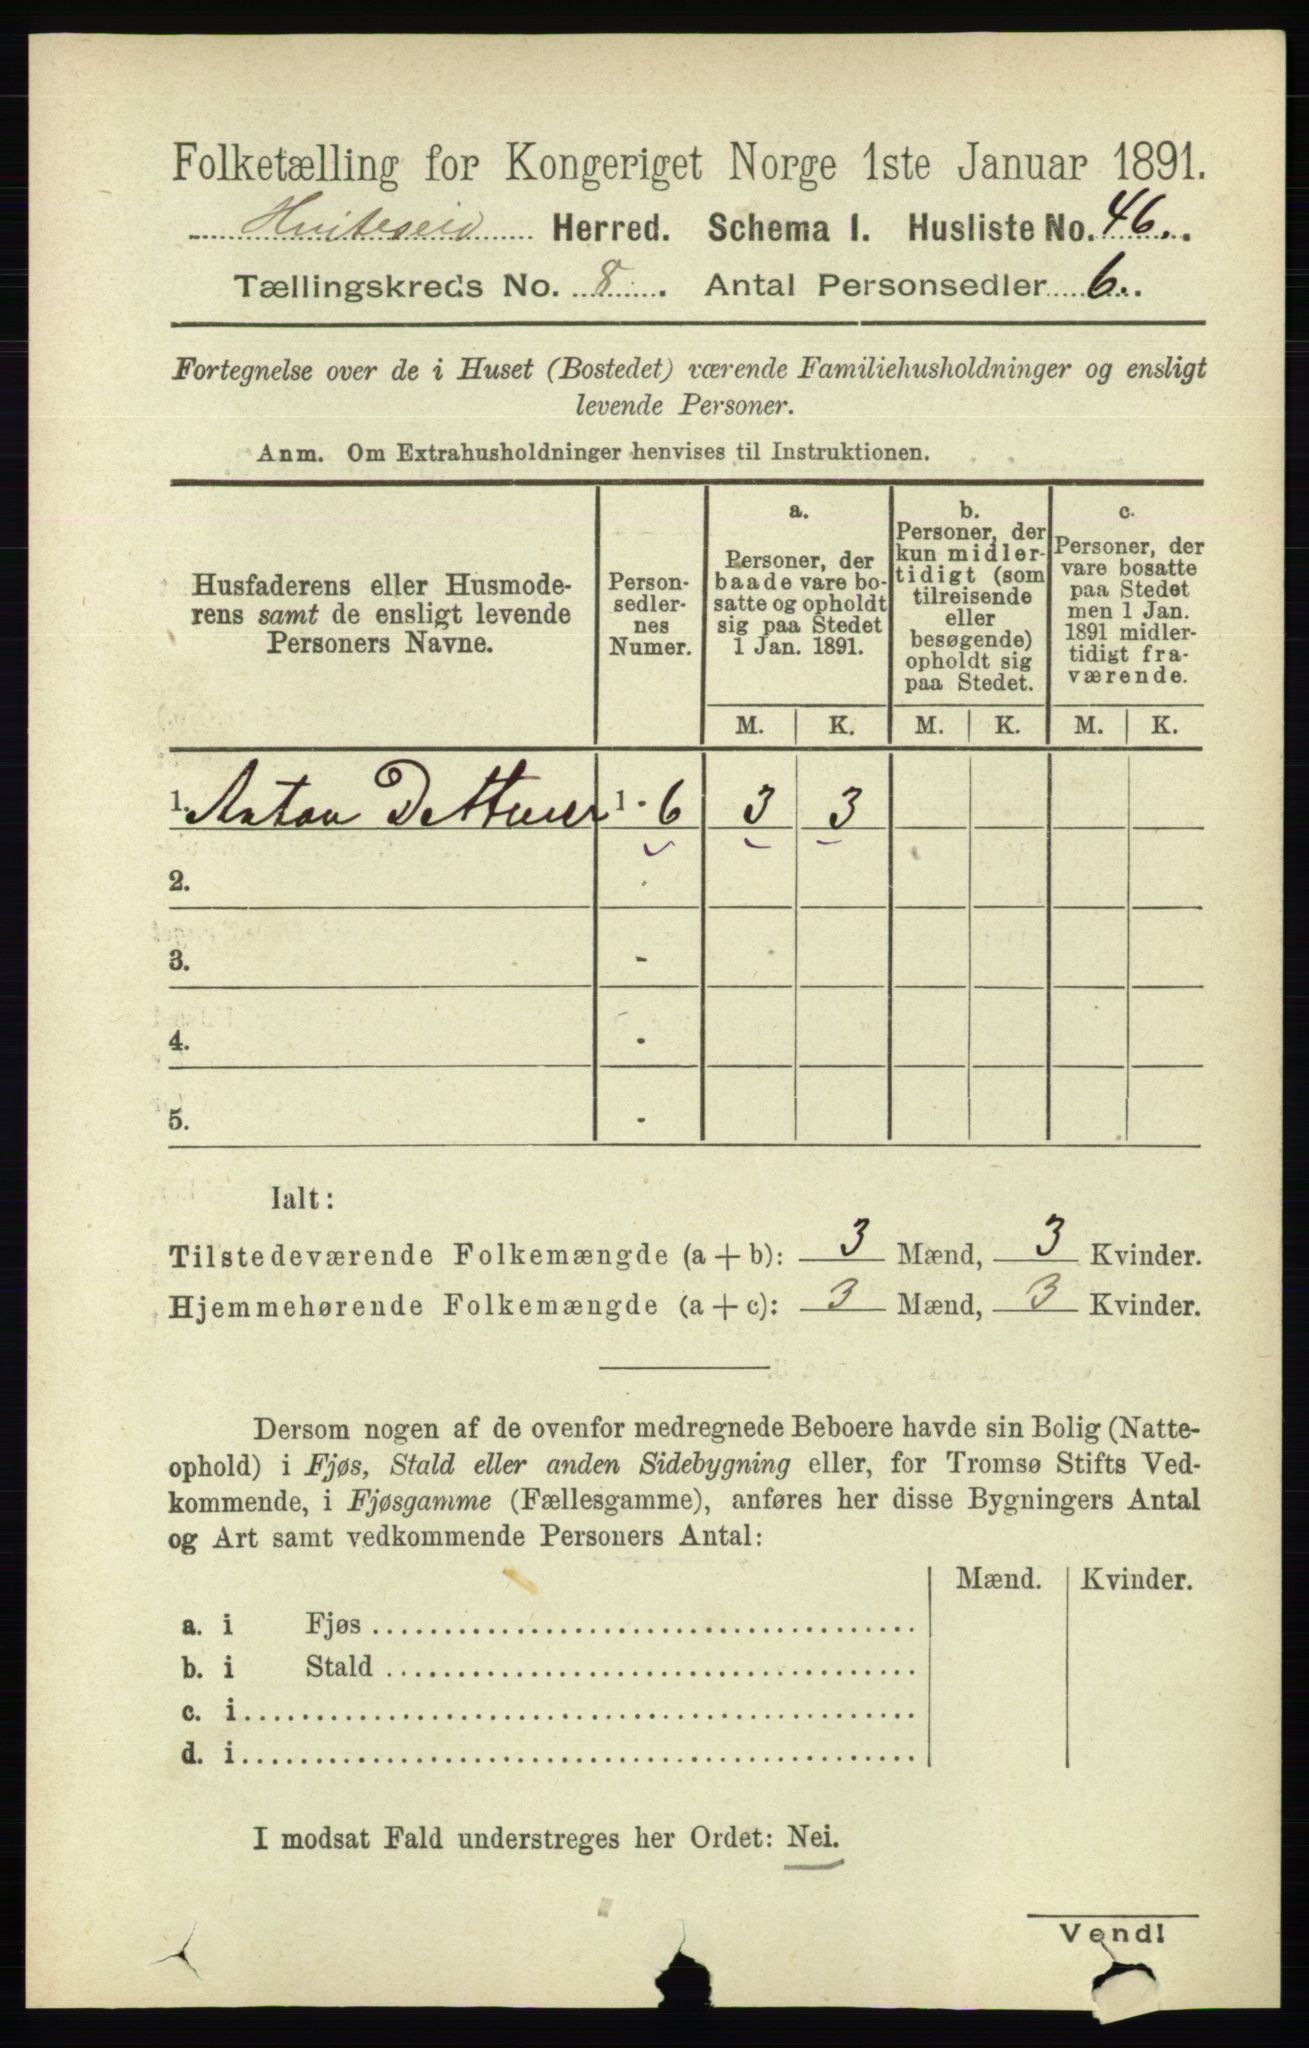 Folketælling for Kongeriget Norge 1ste Januar 1891.
Hviteseid Herred. Schema I. Husliste No. 46.
Tællingskreds No. 8. Antal Personsedler 6.
Fortegnelse over de i Huset (Bostedet) værende Familiehusholdninger og ensligt
levende Personer.
Anm. Om Extrahusholdninger henvises til Instruktionen.
Husfaderens eller Husmode-
rens samt de ensligt levende
Personers Navne.
Person-
sedler-
nes
Numer.
a.
Personer, der
baade vare bo-
satte og opholdt
sig paa Stedet
1 Jan. 1891.
b.
Personer, der
kun midler-
tidigt (som
tilreisende
eller
besøgende)
opholdt sig
paa Stedet.
c.
Personer, der
vare bosatte
paa Stedet
men 1 Jan.
1891 midler-
tidigt fra-
værende.
M. K. M. K. M. K.
1. Anton 1 - 6 3 3
2.
3. -
4. -
5. -
Ialt:
Tilstedeværende Folkemængde (a + b): 3 Mænd, 3 Kvinder.
Hjemmehørende Folkemængde (a + c): 3 Mænd, 3 Kvinder.
Dersom nogen af de ovenfor medregnede Beboere havde sin Bolig (Natte-
ophold) i Fjøs, Stald eller anden Sidebygning eller, for Tromsø Stifts Ved-
kommende, i Fjøsgamme (Fællesgamme), anføres her disse Bygningers Antal
og Art samt vedkommende Personers Antal:
Mænd. Kvinder.
a. i Fjøs
b. i Stald
c. i
d. i
I modsat Fald understreges her Ordet: Nei.
Vend!